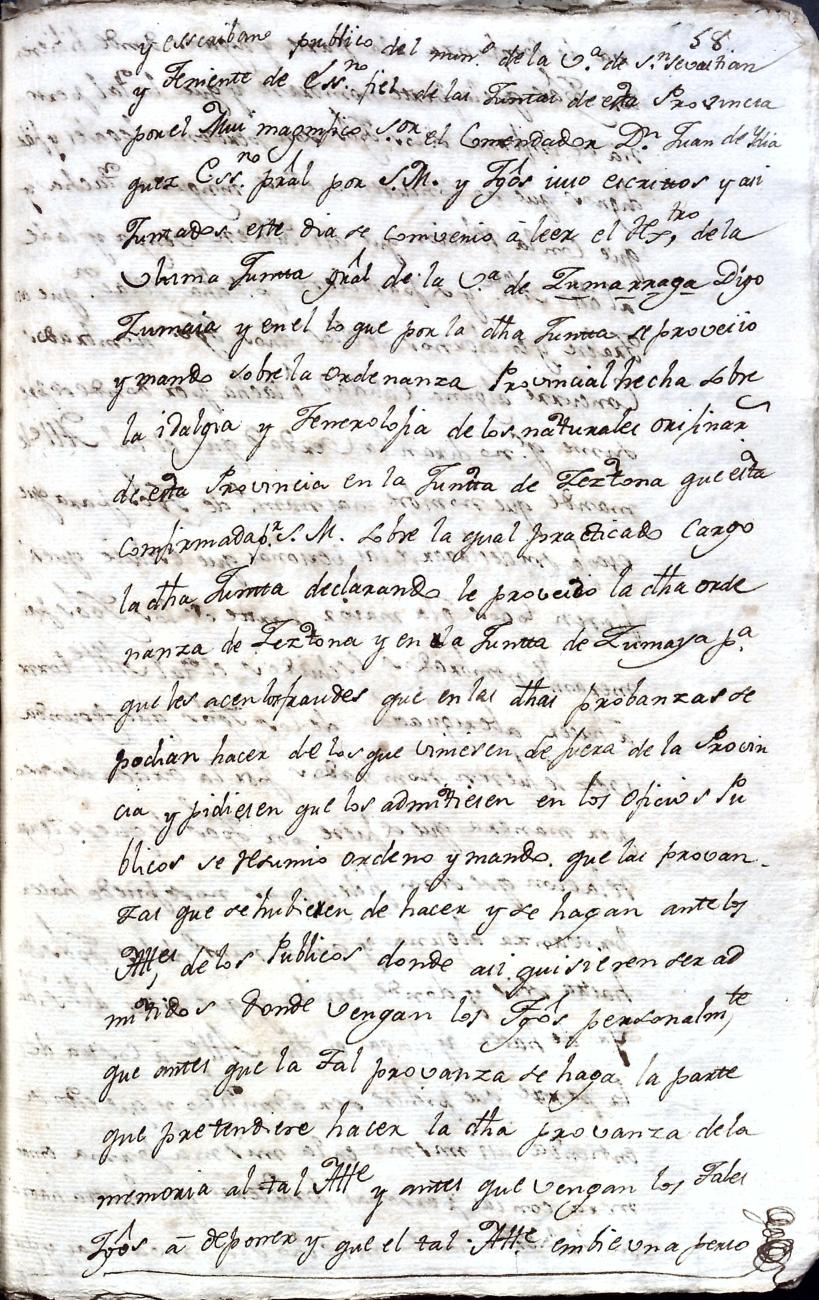 58.
y escribano publico del num.º de la V.ª de S.n Sevastian
y Teniente de Ess.no fiel de las Juntas de esta Provincia
por el Mui magnifico S.or el Comendador D.n Juan de Idia
quez Ess.no pral por S.M. y Tgôs iuso escritos y asi
Juntados este dia se combenio â leer el Rextro de la
Vltima Juntta grâl de la V.ª de Zumarraga Digo
Zumaia y en el lo que por la dha Juntta se proveiio
y mando sobre la ordenanza Provincial hecha sobre
la idalgia y Fenerolosia de los naturales orijinar
de esta Provincia en la Juntta de Zeztona que esta
comfirmada p.r S.M. sobre la qual practicado Cargo
la dha Juntta declarando le proveido la dha orde
nanza de Zeztona y en la Juntta de Zumaya p.ª
que les acen los fraudes que en las dhas probanzas se
podian hacer de los que viniesen, de fuera de la Provin
cia y pidiesen que los admitiesen en los oficios Pu
blicos se resumio ordeno y mando. que las provan-
zas que se hubieren de hacer y se hagan ante los
Alltes de los Publicos donde asi quisieren ser ad
mitidos donde vengan los Tgôs personalmte
que antes que la tal provanza se haga la parte
que pretendiere hacer la dha provanza de la
memoria al tal Allte y antes que vengan los Tales
Tgôs â deponer y que el tal Allte embie una perso